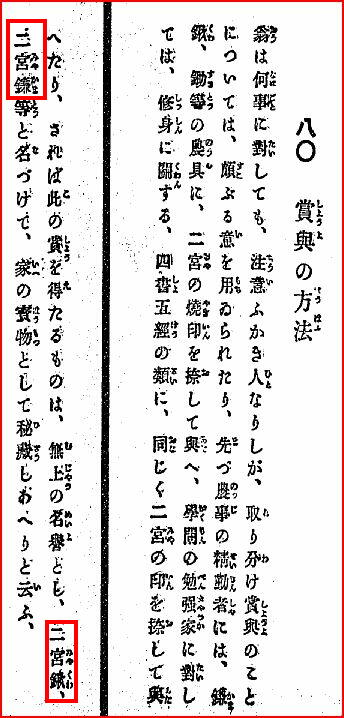 八〇　賞與の方法
翁は何事に對しても、注意ふかき人なりしが、取り分け賞與のこと
については、頗ぶる意を用ゐられたり、先づ農事の精勤者には、鎌
鍬、鋤等の農具に、二宮の燒印を捺して與へ、學問の勉强家に對し
ては、修身に關する、四書五經の類に、同じく二宮の印を捺して與
へたり、されば此の賞を得たるものは、無上の名譽とし、二宮鍬、
二宮鎌等と名づけて、家の寶物として秘藏しおへりと云ふ、